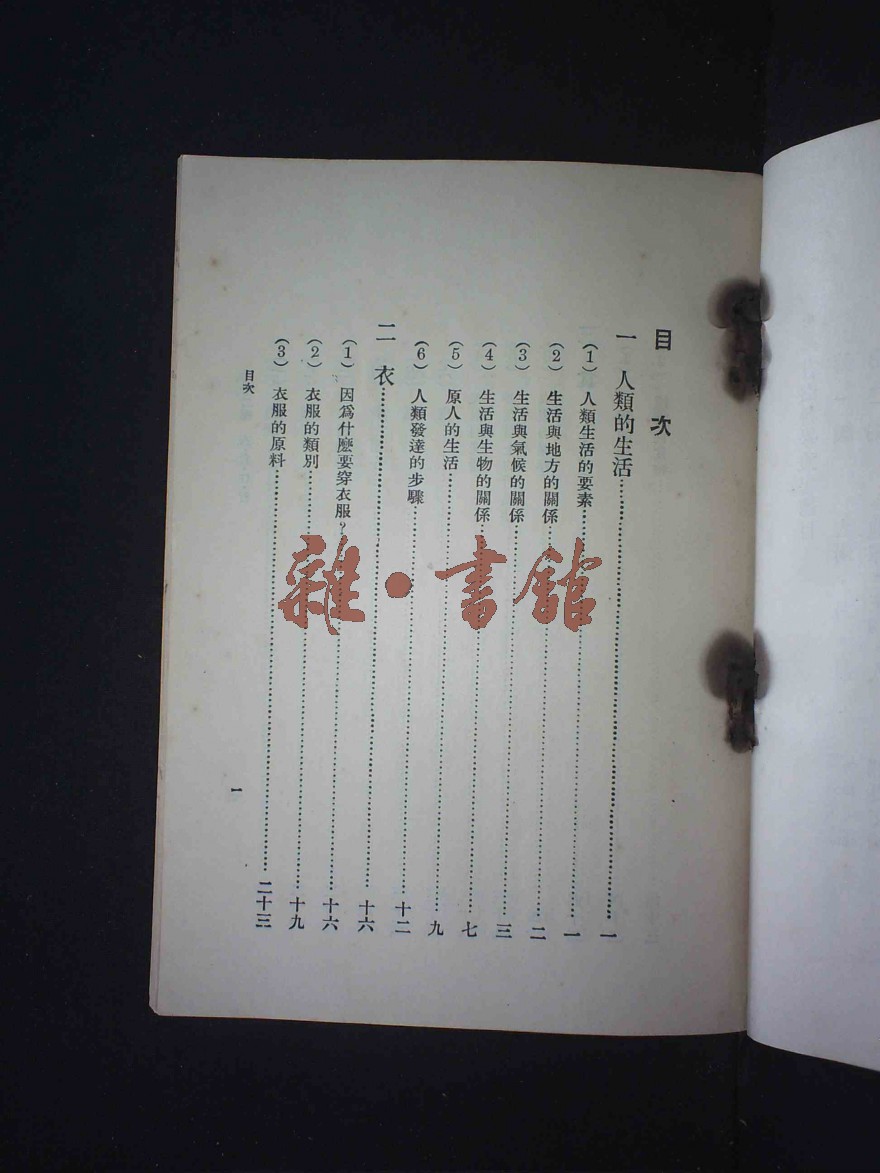 目次
一 人類的生活……一
(1) 人類生活的要素……一
(2) 生活與地方的關係……二
(3) 生活與氣候的關係……三
(4) 生活與生物的關係……七
(5) 原人的生活……九
(6) 人類發達的步驟……十二
二 衣……十六
(1) 因爲什麽要穿衣服?……十六
(2) 衣服的類別……十九
(3) 衣服的原料……二十三
目次
一
雜·書館